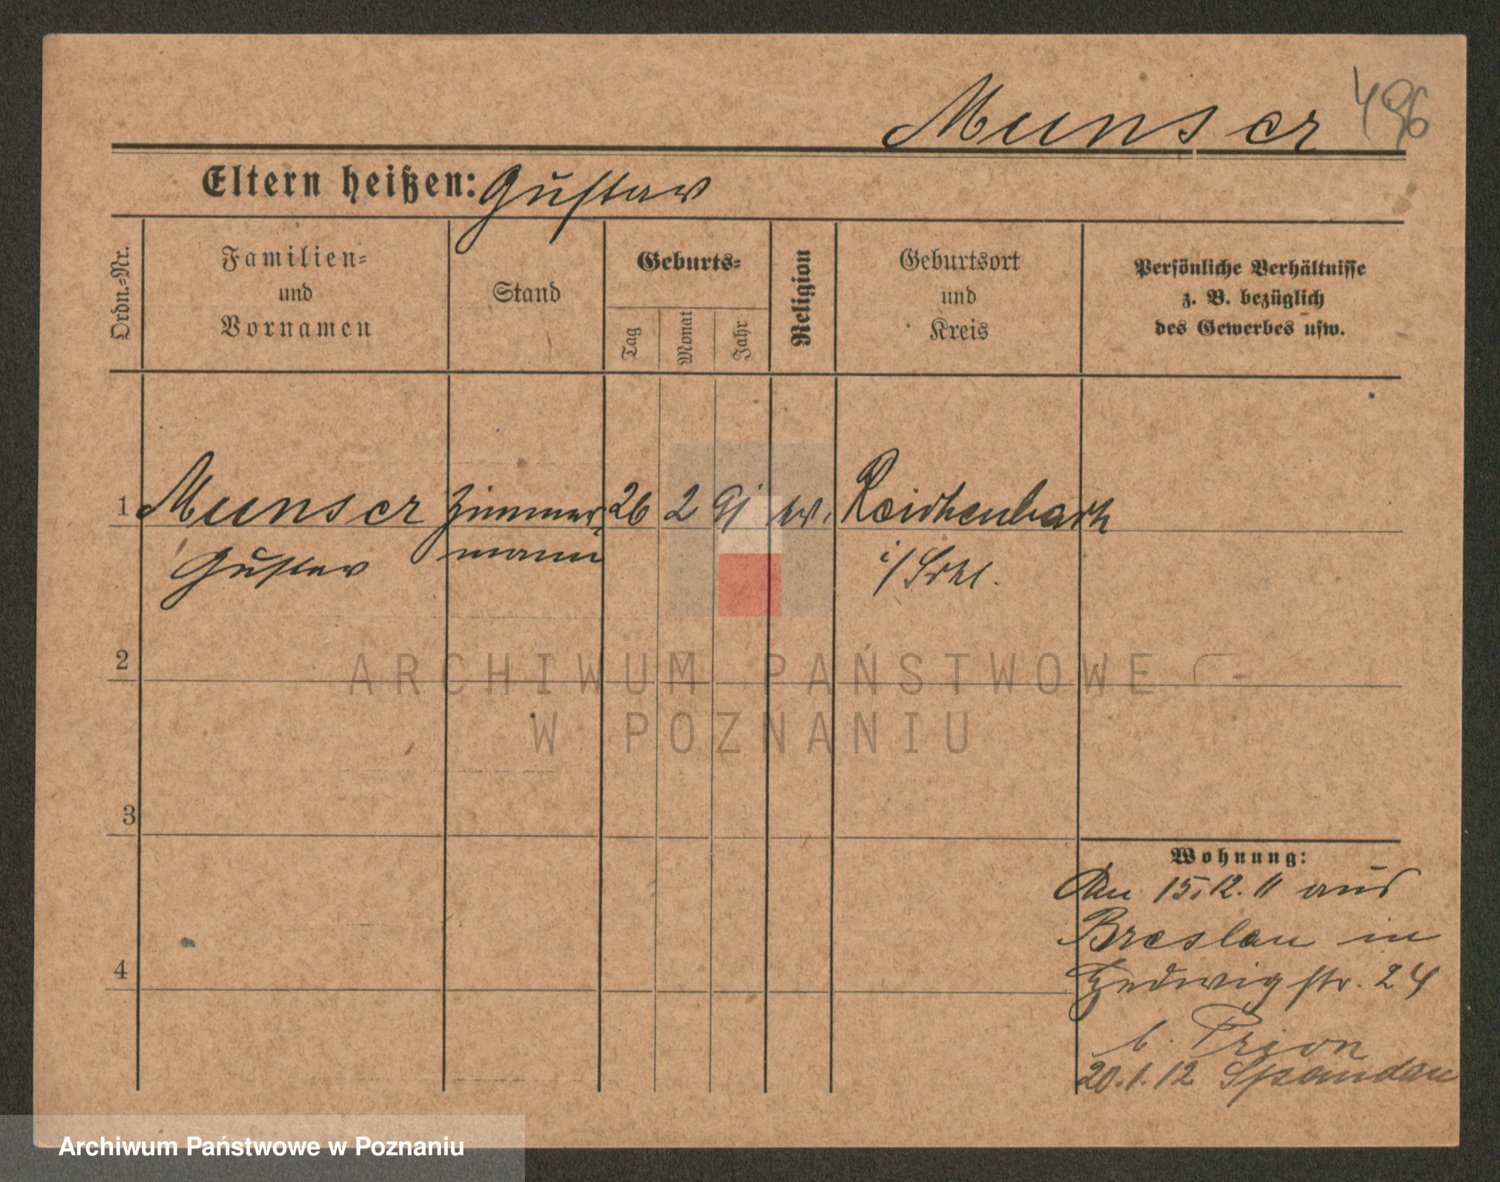 Munser 496
Eltern heißen: Gustav
Ordn.-Nr.
Familien-
und
Vornamen
Stand
Geburts-
Tag
Monat
Jahr
Religion
Geburtsort
und
Kreis
Persönliche Verhältnisse
z. B. bezüglich
des Gewerbes usw.
1 Munser Zimmer- 26 2 91 ev. Reichenbach
Gustav mann i/Schl.
2
ARCHIWUM PAŃSTWOWE
W POZNANIU
3
Wohnung:
15.12.11 aus
Breslau in
Hedwigstr. 24
b. Prion
20.1.12 Spandau
4
Archiwum Państwowe w Poznaniu